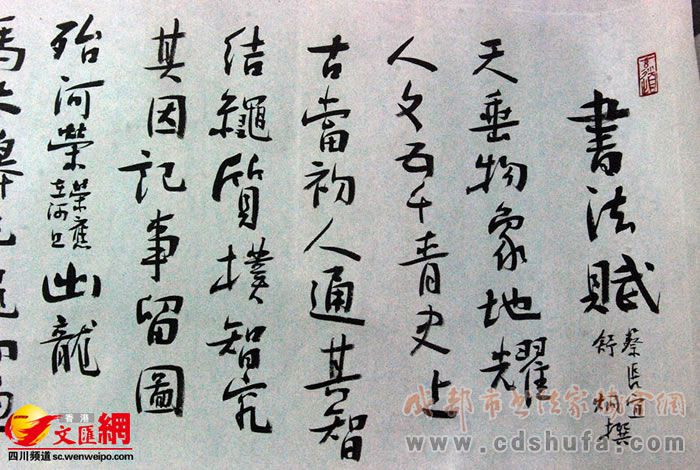 書法賦
蔡長宜
舒炯撰
天垂物象地耀
人文五千青史上
古當初人通其智
結繩質撲智究
其因記事留圖
殆河榮
榮應
在河上
出龍
香港
文匯網
四川频道 sc.wenweipo.com
成都市书法家协会官网
www.cdshufa.com